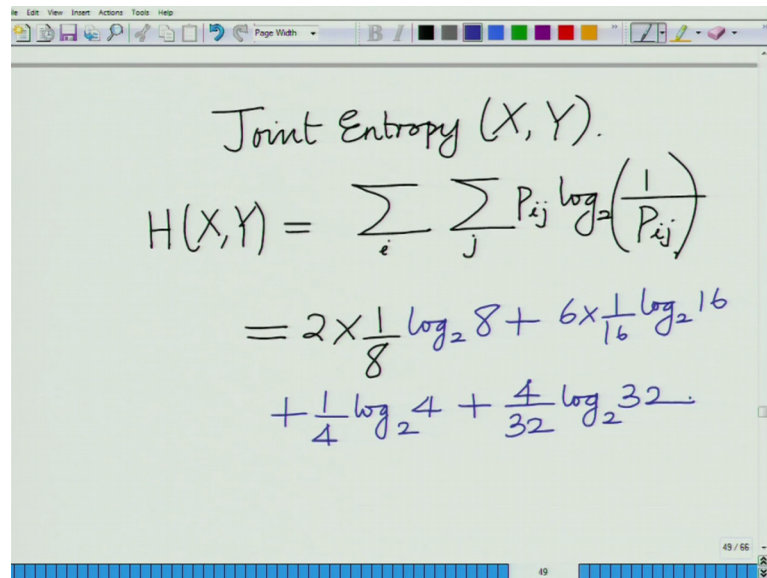 le Edit View Insert Actions Tools Help
Page Width B I
Joint Entropy (X, Y).
H(X,Y) = ∑_i ∑_j P_ij log_2(1/P_ij)
= 2 × 1/8 log_2 8 + 6 × 1/16 log_2 16
+ 1/4 log_2 4 + 4/32 log_2 32.
49 / 66
49